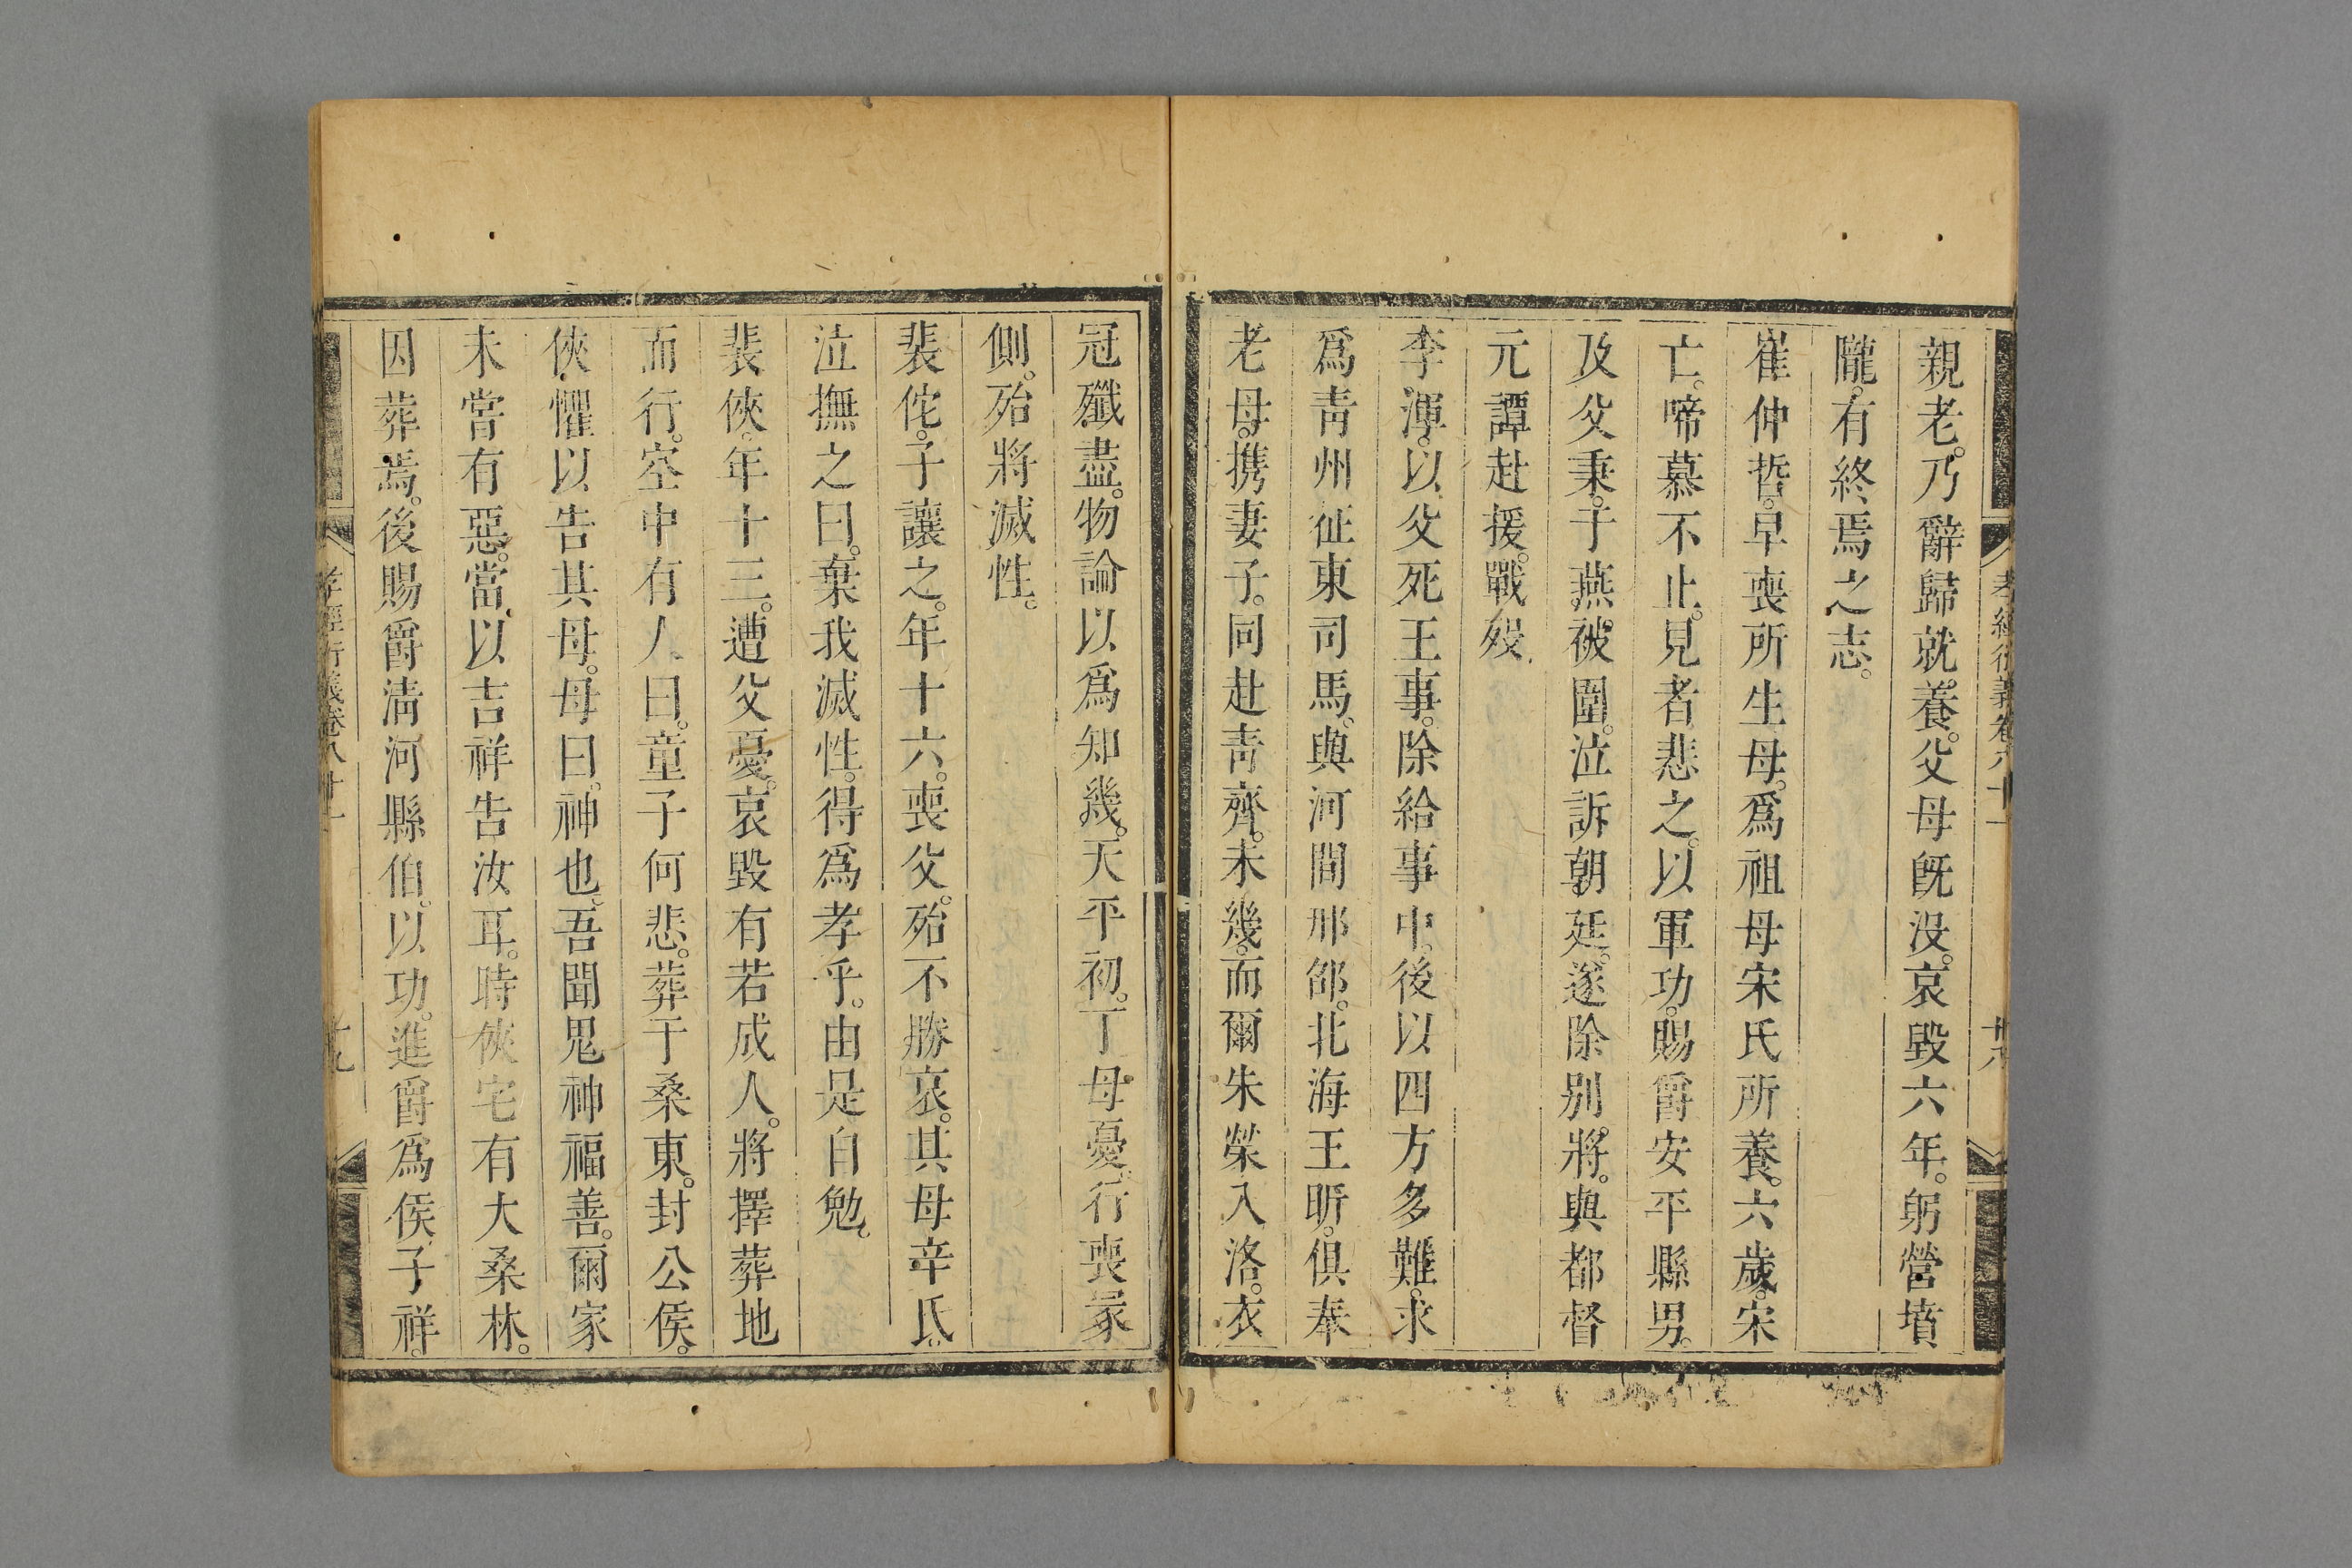 親老。乃辭歸就養。父母旣没。哀毀六年。躬營墳
隴。有終焉之志。
崔仲哲。早喪所生母。爲祖母宋氏所養。六歲。宋
亡。啼慕不止。見者悲之。以軍功。賜爵安平縣男。
及父秉。于燕。被圍。泣訴朝廷。遂除别將。與都督
元譚赴援。戰歿。
李渾。以父死王事。除給事中。後以四方多難。求
爲靑州征東司馬。與河間邢邵。北海王昕。俱奉
老母。携妻子。同赴靑齊。未幾。而爾朱榮入洛。衣
冠殲盡。物論以爲知幾。天平初。丁母憂。行喪冢
側。殆將滅性。
裴侘。子讓之。年十六。喪父。殆不勝哀。其母辛氏
泣撫之曰。棄我滅性。得爲孝乎。由是自勉。
裴俠。年十三。遭父憂。哀毀有若成人。將擇葬地
而行。空中有人曰。童子何悲。葬于桑東。封公侯。
俠懼以告其母。母曰。神也。吾聞鬼神福善。爾家
未嘗有惡。當以吉祥告汝耳。時俠宅有大桑林。
因葬焉。後賜爵淸河縣伯。以功。進爵爲侯。子祥。